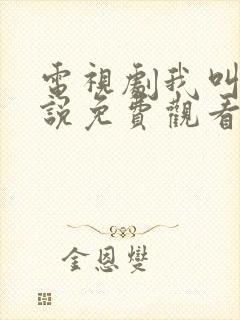 電視劇我叫
說免費觀看
金恩燮